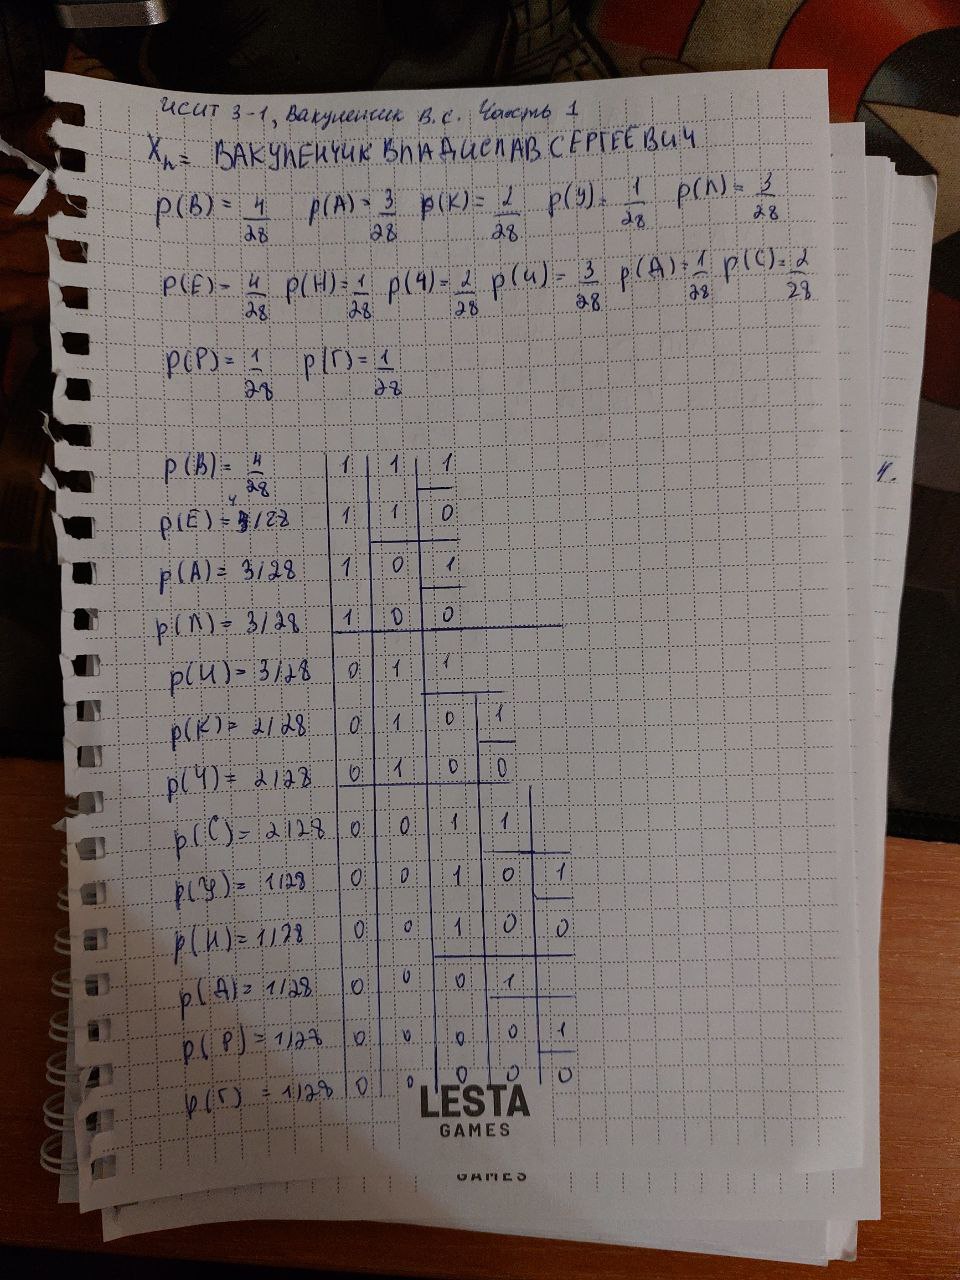 ИСИТ 3-1, Вакуленчик В.С. Часть 1
Xn= ВАКУЛЕНЧИК ВЛАДИСЛАВ СЕРГЕЕВИЧ
p(В)= 4/28 p(А)= 3/28 p(К)= 2/28 p(У)= 1/28 p(Л)= 3/28
p(Е)= 4/28 p(Н)= 1/28 p(Ч)= 2/28 p(И)= 3/28 p(Д)= 1/28 p(С)= 2/28
p(Р)= 1/28 p(Г)= 1/28
p(В)= 4/28 1 1 1
p(Е)= 4/28 1 1 0
p(А)= 3/28 1 0 1
p(Л)= 3/28 1 0 0
p(И)= 3/28 0 1 1
p(К)= 2/28 0 1 0 1
p(Ч)= 2/28 0 1 0 0
p(С)= 2/28 0 0 1 1
p(У)= 1/28 0 0 1 0 1
p(Н)= 1/28 0 0 1 0 0
p(Д)= 1/28 0 0 0 1
p(Р)= 1/28 0 0 0 0 1
p(Г) = 1/28 0 0 0 0 0
LESTA
GAMES
GAMES